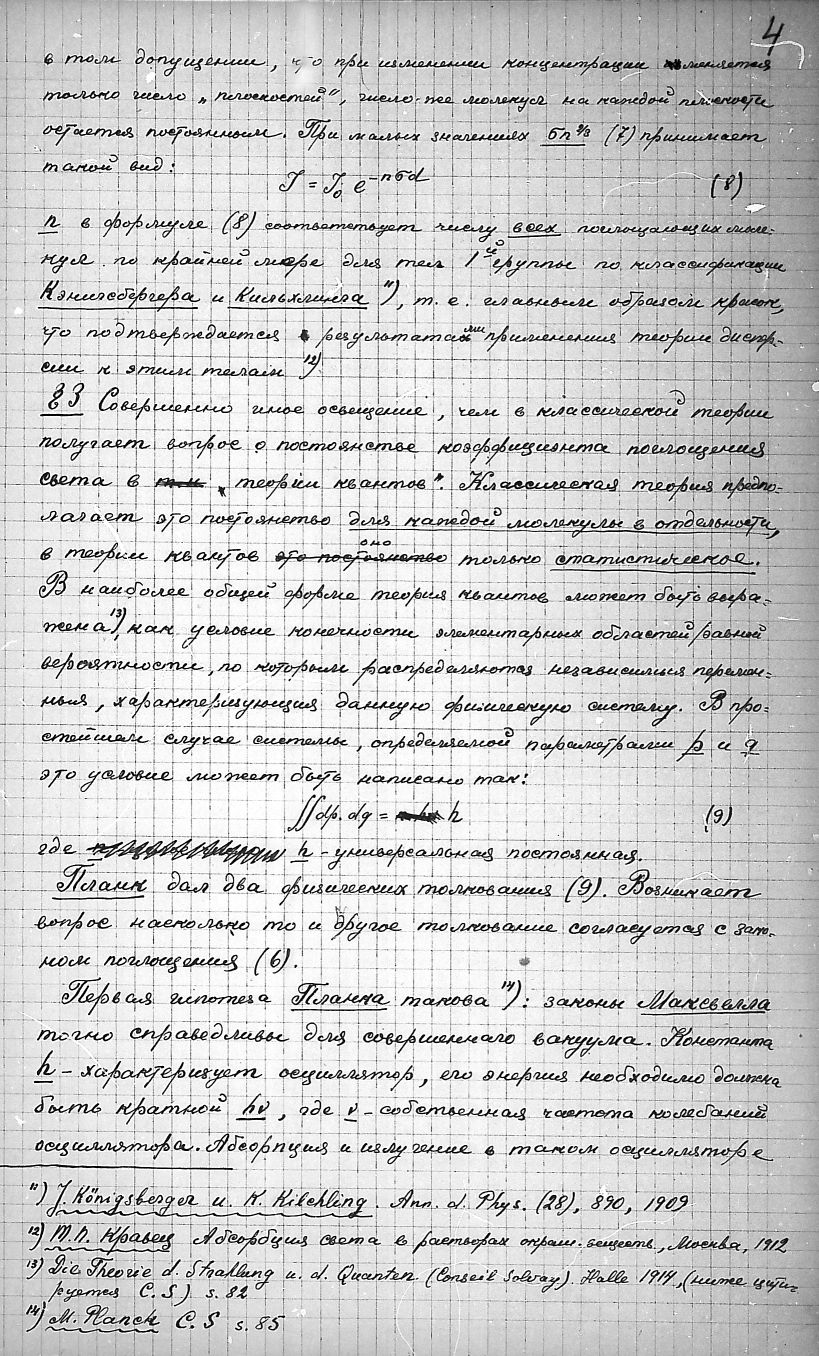 4
в том допущении, что при изменении концентрации меняется
только число „плоскостей", число же молекул на каждой плоскости
остается постоянным. При малых значениях σn^2/3 (7) принимает
такой вид:
J = J₀ e^−nσd (8)
n в формуле (8) соответствует числу всех поглощающих моле-
кул по крайней мере для тел 1ой группы по классификации
Кэнигсбергера и Кильхлинга 11), т. е. главным образом красок,
что подтверждается результатами применения теории диспер-
сии к этим телам 12)
§3 Совершенно иное освещение, чем в классической теории
получает вопрос о постоянстве коэффициэнта поглощения
света в „теории квантов". Классическая теория предпо-
лагает это постоянство для каждой молекулы в отдельности,
в теории квантов это постоянство оно только статистическое.
В наиболее общей форме теория квантов может быть выра-
жена 13), как условие конечности элементарных областей равной
вероятности, по которым распределяются независимыя перемен-
ныя, характеризующия данную физическую систему. В про-
стейшем случае системы, определяемой параметрами p и q
это условие может быть написано так:
∬dp. dq = h (9)
где h – универсальная постоянная.
Планк дал два физических толкования (9). Возникает
вопрос насколько то и другое толкование согласуется с зако-
ном поглощения (6).
Первая гипотеза Планка такова 14): законы Максвелла
точно справедливы для совершеннаго вакуума. Константа
h – характеризует осциллятор, его энергия необходимо должна
быть кратной hν, где ν – собственная частота колебаний
осциллятора. Абсорпция и излучение в таком осцилляторе
11) J. Königsberger u. K. Kilchling. Ann. d. Phys. (28), 890, 1909
12) Т.П. Кравец Абсорбция света в растворах окраш. веществ, Москва, 1912
13) Die Theorie d. Strahlung u. d. Quanten (Conseil Solvay). Halle 1914, (ниже цити-
руется C.S) s. 82
14) M. Planck C. S s. 85